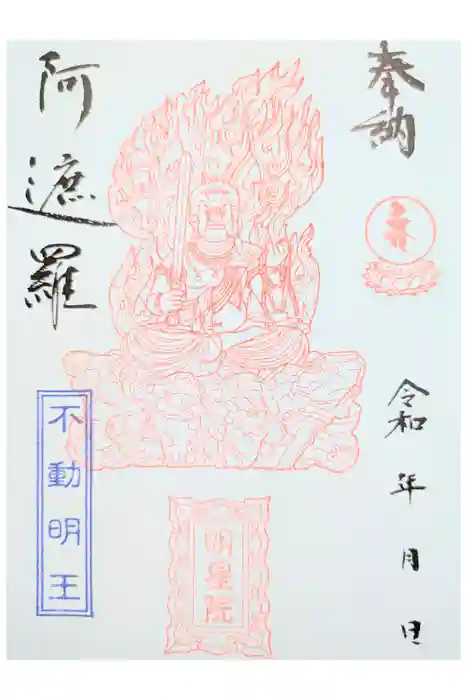 奉納
令和 年 月 日
阿遮羅
不動明王
明星院